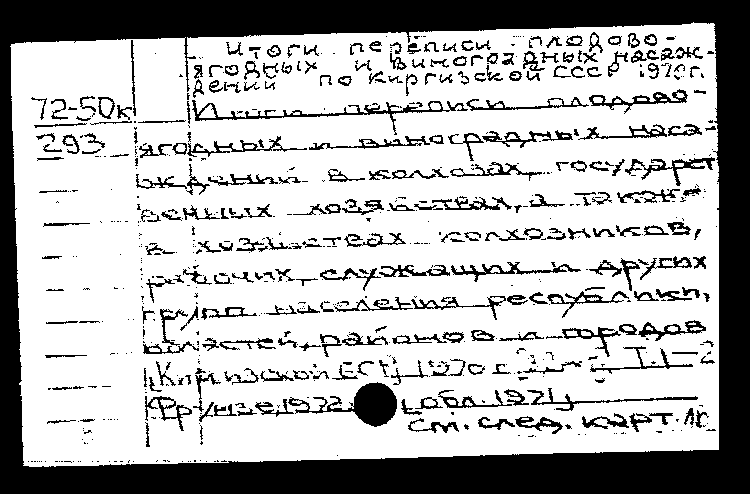 Итоги переписи плодово-
ягодных и виноградных насаж-
дений по Киргизской ССР 1970г.
72-50к
293
Итоги переписи плодово-
ягодных и виноградных наса-
ждений в колхозах, государст
венных хозяйствах, а также
в хозяйствах колхозников,
рабочих, служащих и других
групп населения республики,
областей, районов и городов
Киргизской ССР 1970 г. Т.1-2
Фрунзе, 1972. [обл. 1971]
См. след. карт.